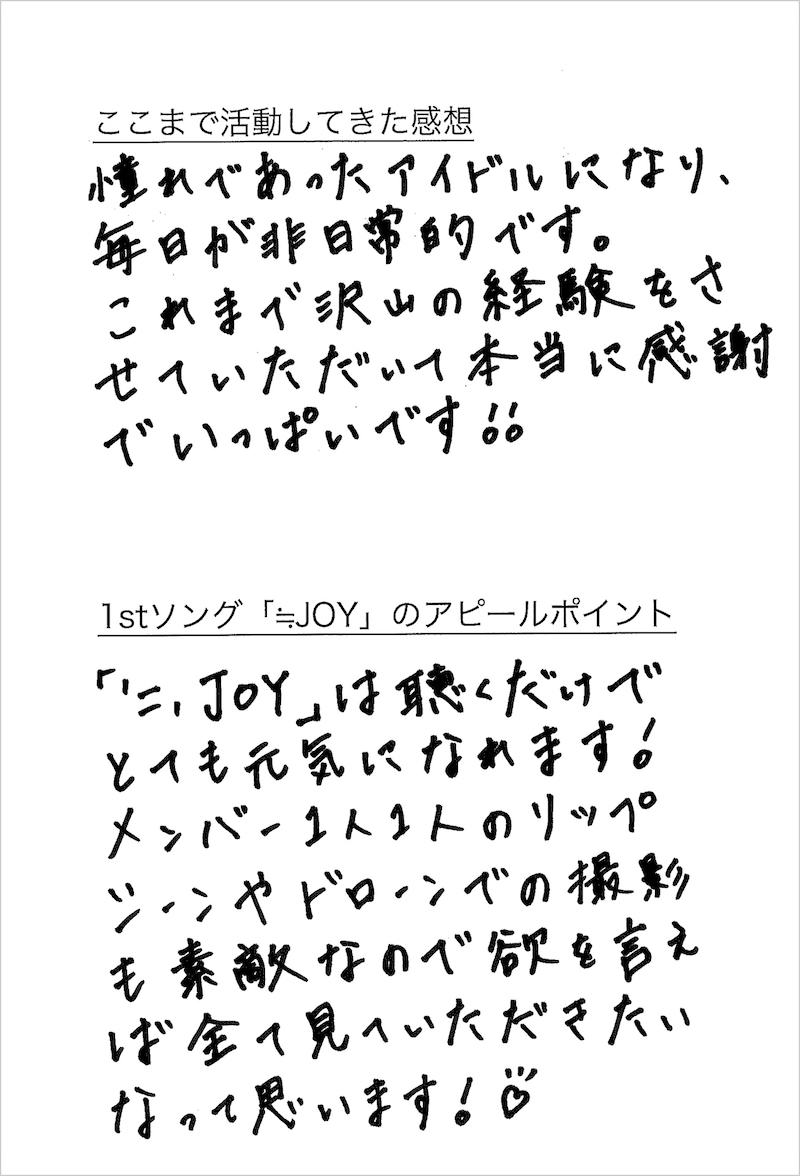 ここまで活動してきた感想
憧れであったアイドルになり、
毎日が非日常的です。
これまで沢山の経験をさ
せていただいて本当に感謝
でいっぱいです!!
1stソング「≒JOY」のアピールポイント
「≒JOY」は聴くだけで
とても元気になれます!
メンバー1人1人のリップ
シーンやドローンでの撮影
も素敵なので欲を言え
ば全て見ていただきたい
なって思います!♡